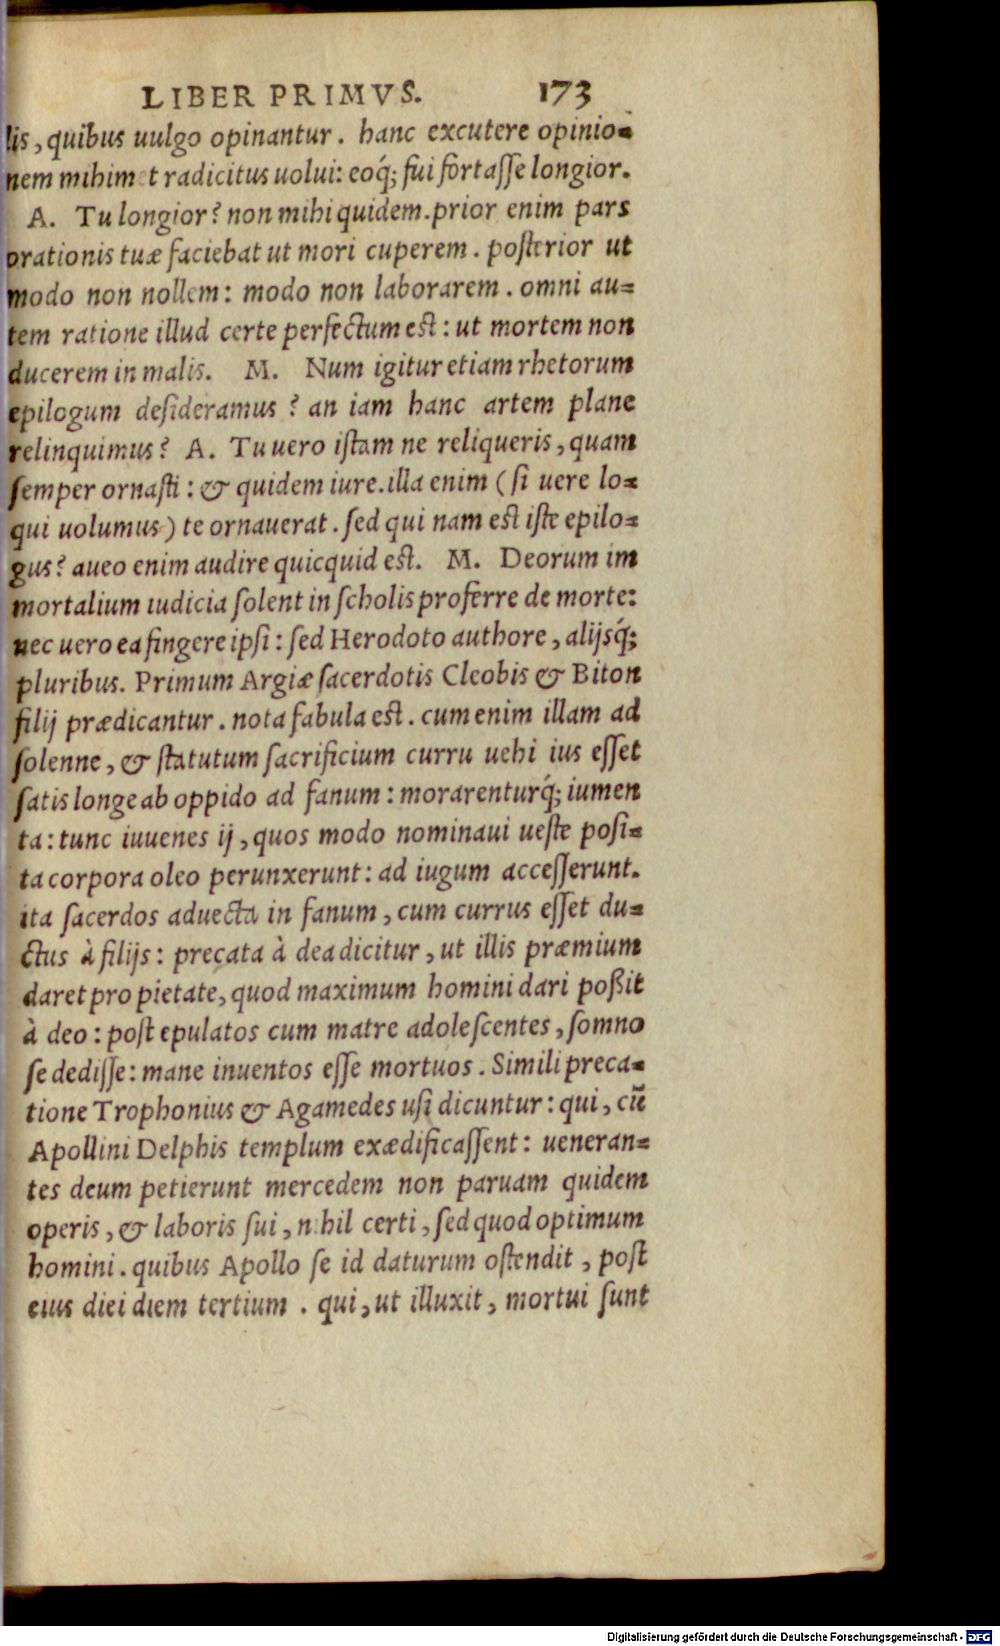 LIBER PRIMVS. 173
lis, quibus uulgo opinantur. hanc excutere opinio=
nem mihimet radicitus uolui: eoq́; fui fortaſſe longior.
A. Tu longior? non mihi quidem. prior enim pars
orationis tuæ faciebat ut mori cuperem. poſterior ut
modo non nollem: modo non laborarem. omni au=
tem ratione illud certe perfectum est: ut mortem non
ducerem in malis. M. Num igitur etiam rhetorum
epilogum deſideramus? an iam hanc artem plane
relinquimus? A. Tu uero iſtam ne reliqueris, quam
ſemper ornaſti: & quidem iure. illa enim (ſi uere lo=
qui uolumus) te ornauerat. ſed qui nam est iſte epilo=
gus? aueo enim audire quicquid est. M. Deorum im
mortalium iudicia ſolent in ſcholis proferre de morte:
nec uero ea fingere ipſi: ſed Herodoto authore, alijsq́;
pluribus. Primum Argiæ ſacerdotis Cleobis & Biton
filij prædicantur. nota fabula est. cum enim illam ad
ſolenne, & ſtatutum ſacrificium curru uehi ius eſſet
ſatis longe ab oppido ad fanum: morarenturq́; iumen
ta: tunc iuuenes ij, quos modo nominaui ueſte poſi=
ta corpora oleo perunxerunt: ad iugum acceſſerunt.
ita ſacerdos aduecta in fanum, cum currus eſſet du=
ctus à filijs: precata à dea dicitur, ut illis præmium
daret pro pietate, quod maximum homini dari poßit
à deo: poſt epulatos cum matre adoleſcentes, ſomno
ſe dediſſe: mane inuentos eſſe mortuos. Simili preca=
tione Trophonius & Agamedes uſi dicuntur: qui, cū
Apollini Delphis templum exædificaſſent: ueneran=
tes deum petierunt mercedem non paruam quidem
operis, & laboris ſui, nihil certi, ſed quod optimum
homini. quibus Apollo ſe id daturum oſtendit, poſt
eius diei diem tertium. qui, ut illuxit, mortui ſunt
Digitalisierung gefördert durch die Deutsche Forschungsgemeinschaft - DFG